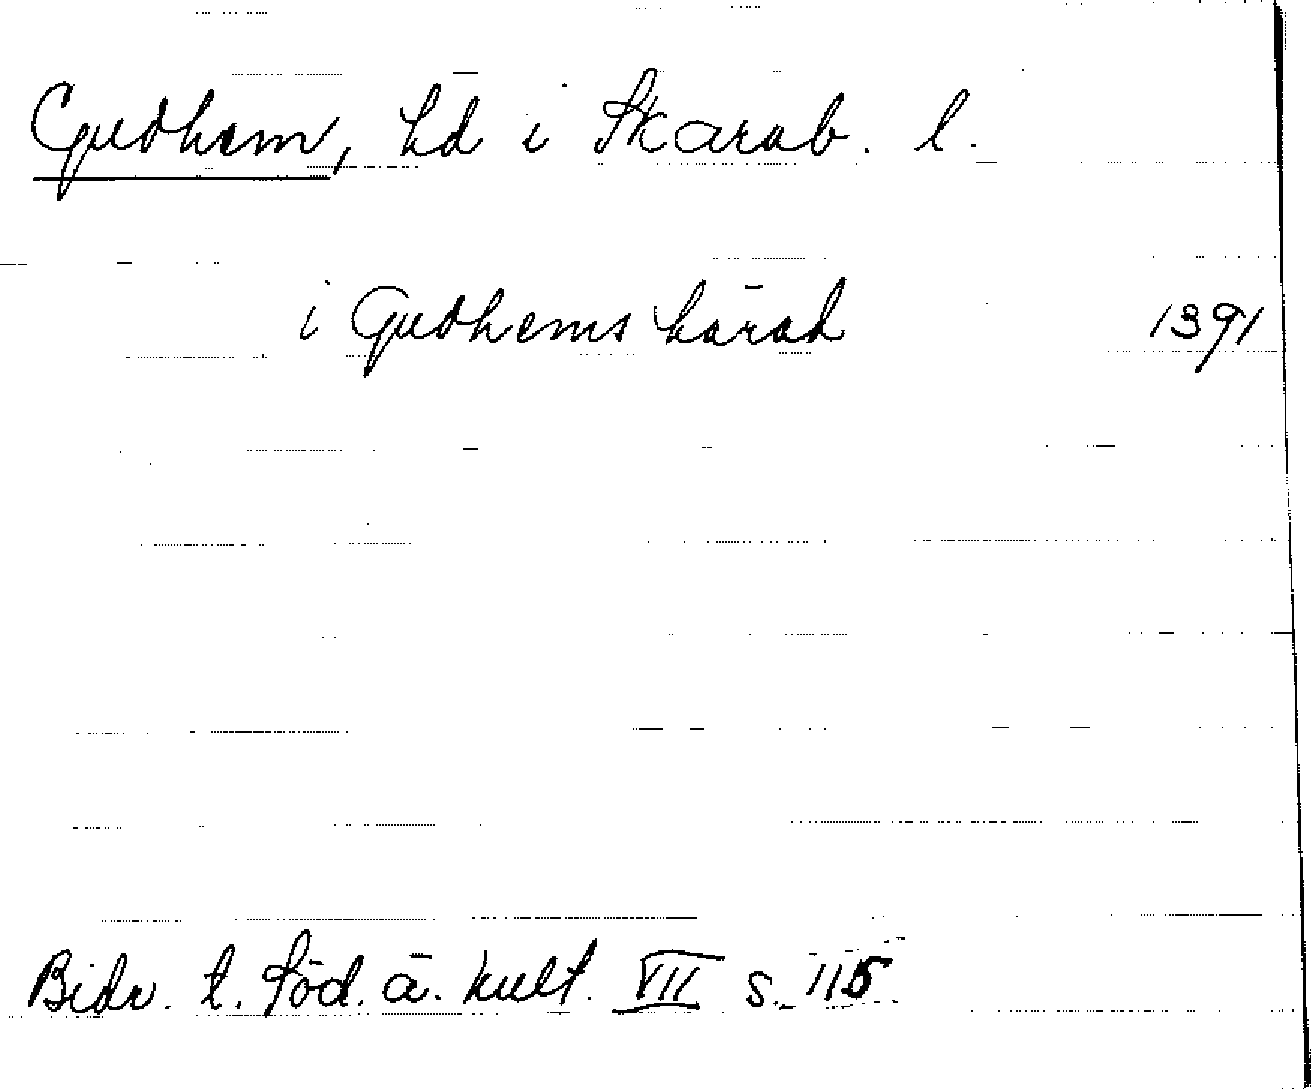 Gudhem, hd i Skarab. l.
i Gudhems härad 1391
Bidr. t. Söd. ä. kult. VII s. 115